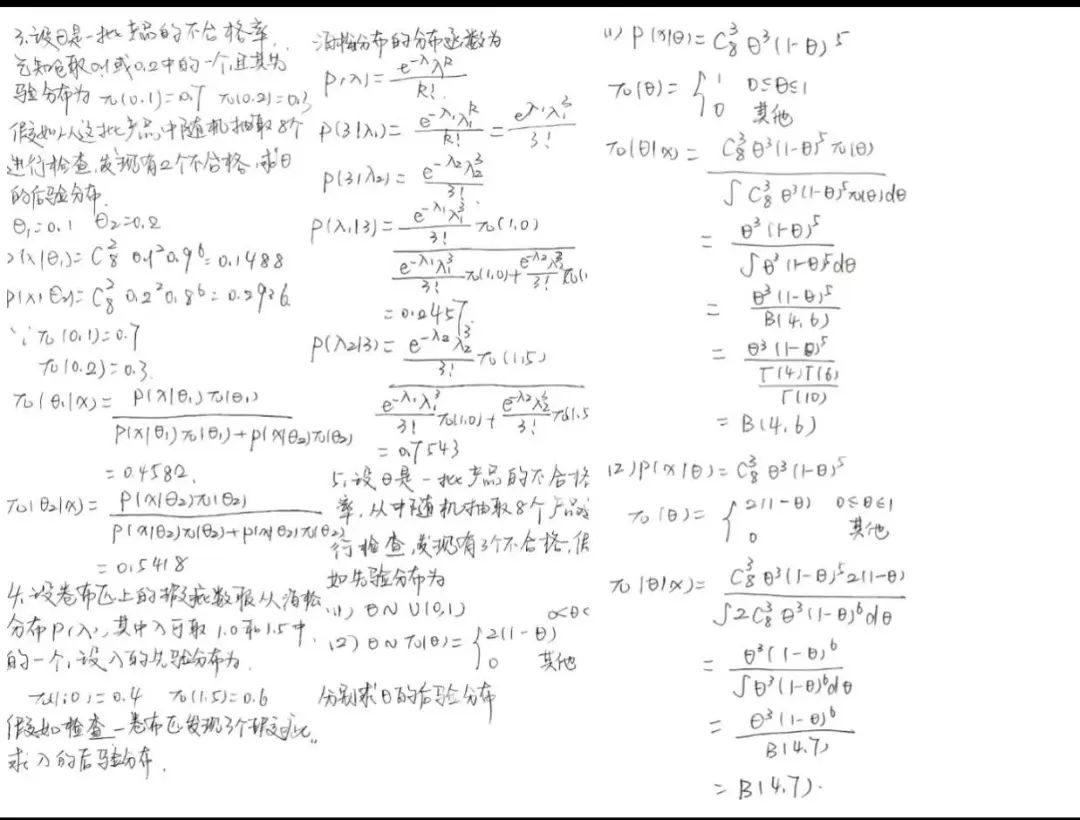 3.设θ是一批产品的不合格率,
已知它取0.1或0.2中的一个,且其先
验分布为 π(0.1)=0.7 π(0.2)=0.3
假如从这批产品中随机抽取8个
进行检查,发现有2个不合格,求θ
的后验分布.
θ₁=0.1 θ₂=0.2
P(x|θ₁)=C₈² 0.1² 0.9⁶=0.1488
P(x|θ₂)=C₈² 0.2² 0.8⁶=0.2936
∵π(0.1)=0.7
π(0.2)=0.3.
π(θ₁|x)= P(x|θ₁)π(θ₁)
P(x|θ₁)π(θ₁)+p(x|θ₂)π(θ₂)
=0.4582.
π(θ₂|x)= P(x|θ₂)π(θ₂)
P(x|θ₂)π(θ₂)+p(x|θ₂)π(θ₂)
=0.5418
4.设卷布匹上的瑕疵数服从泊松
分布P(λ),其中λ可取1.0和1.5中
的一个,设λ的先验分布为.
π(1.0)=0.4 π(1.5)=0.6
假如检查一卷布匹发现3个瑕疵.
求λ的后验分布.
泊松分布的分布函数为
P(λ)= e^-λ λ^k
k!
P(3|λ₁)= e^-λ₁ λ₁^k / k! = e^λ₁ λ₁³ / 3!
P(3|λ₂)= e^-λ₂ λ₂³ / 3!
P(λ₁|3)= e^-λ₁ λ₁³ / 3! π(1.0)
e^-λ₁ λ₁³ / 3! π(1.0)+ e^-λ₂ λ₂³ / 3! π(1.
=0.2457.
P(λ₂|3)= e^-λ₂ λ₂³ / 3! π(1.5)
e^-λ₁ λ₁³ / 3! π(1.0)+ e^-λ₂ λ₂³ / 3! π(1.5
=0.7543
5.设θ是一批产品的不合格
率,从中随机抽取8个产品
行检查,发现有3个不合格,假
如先验分布为
(1) θ~U(0,1)
(2) θ~π(θ)= { 2(1-θ) 0<θ<
0 其他
分别求θ的后验分布
(1) P(x|θ)=C₈³ θ³(1-θ)⁵
π(θ)= { 1 0≤θ≤1
0 其他
π(θ|x)= C₈³ θ³(1-θ)⁵ π(θ)
∫ C₈³ θ³(1-θ)⁵π(θ)dθ
= θ³(1-θ)⁵
∫θ³(1-θ)⁵dθ
= θ³(1-θ)⁵
B(4,6)
= θ³(1-θ)⁵
Γ(4)Γ(6)
Γ(10)
= B(4,6)
(2) P(x|θ)=C₈³ θ³(1-θ)⁵
π(θ)= { 2(1-θ) 0≤θ≤1
0 其他
π(θ|x)= C₈³ θ³(1-θ)⁵2(1-θ)
∫2C₈³ θ³(1-θ)⁶dθ
= θ³(1-θ)⁶
∫θ³(1-θ)⁶dθ
= θ³(1-θ)⁶
B(4,7)
= B(4,7).